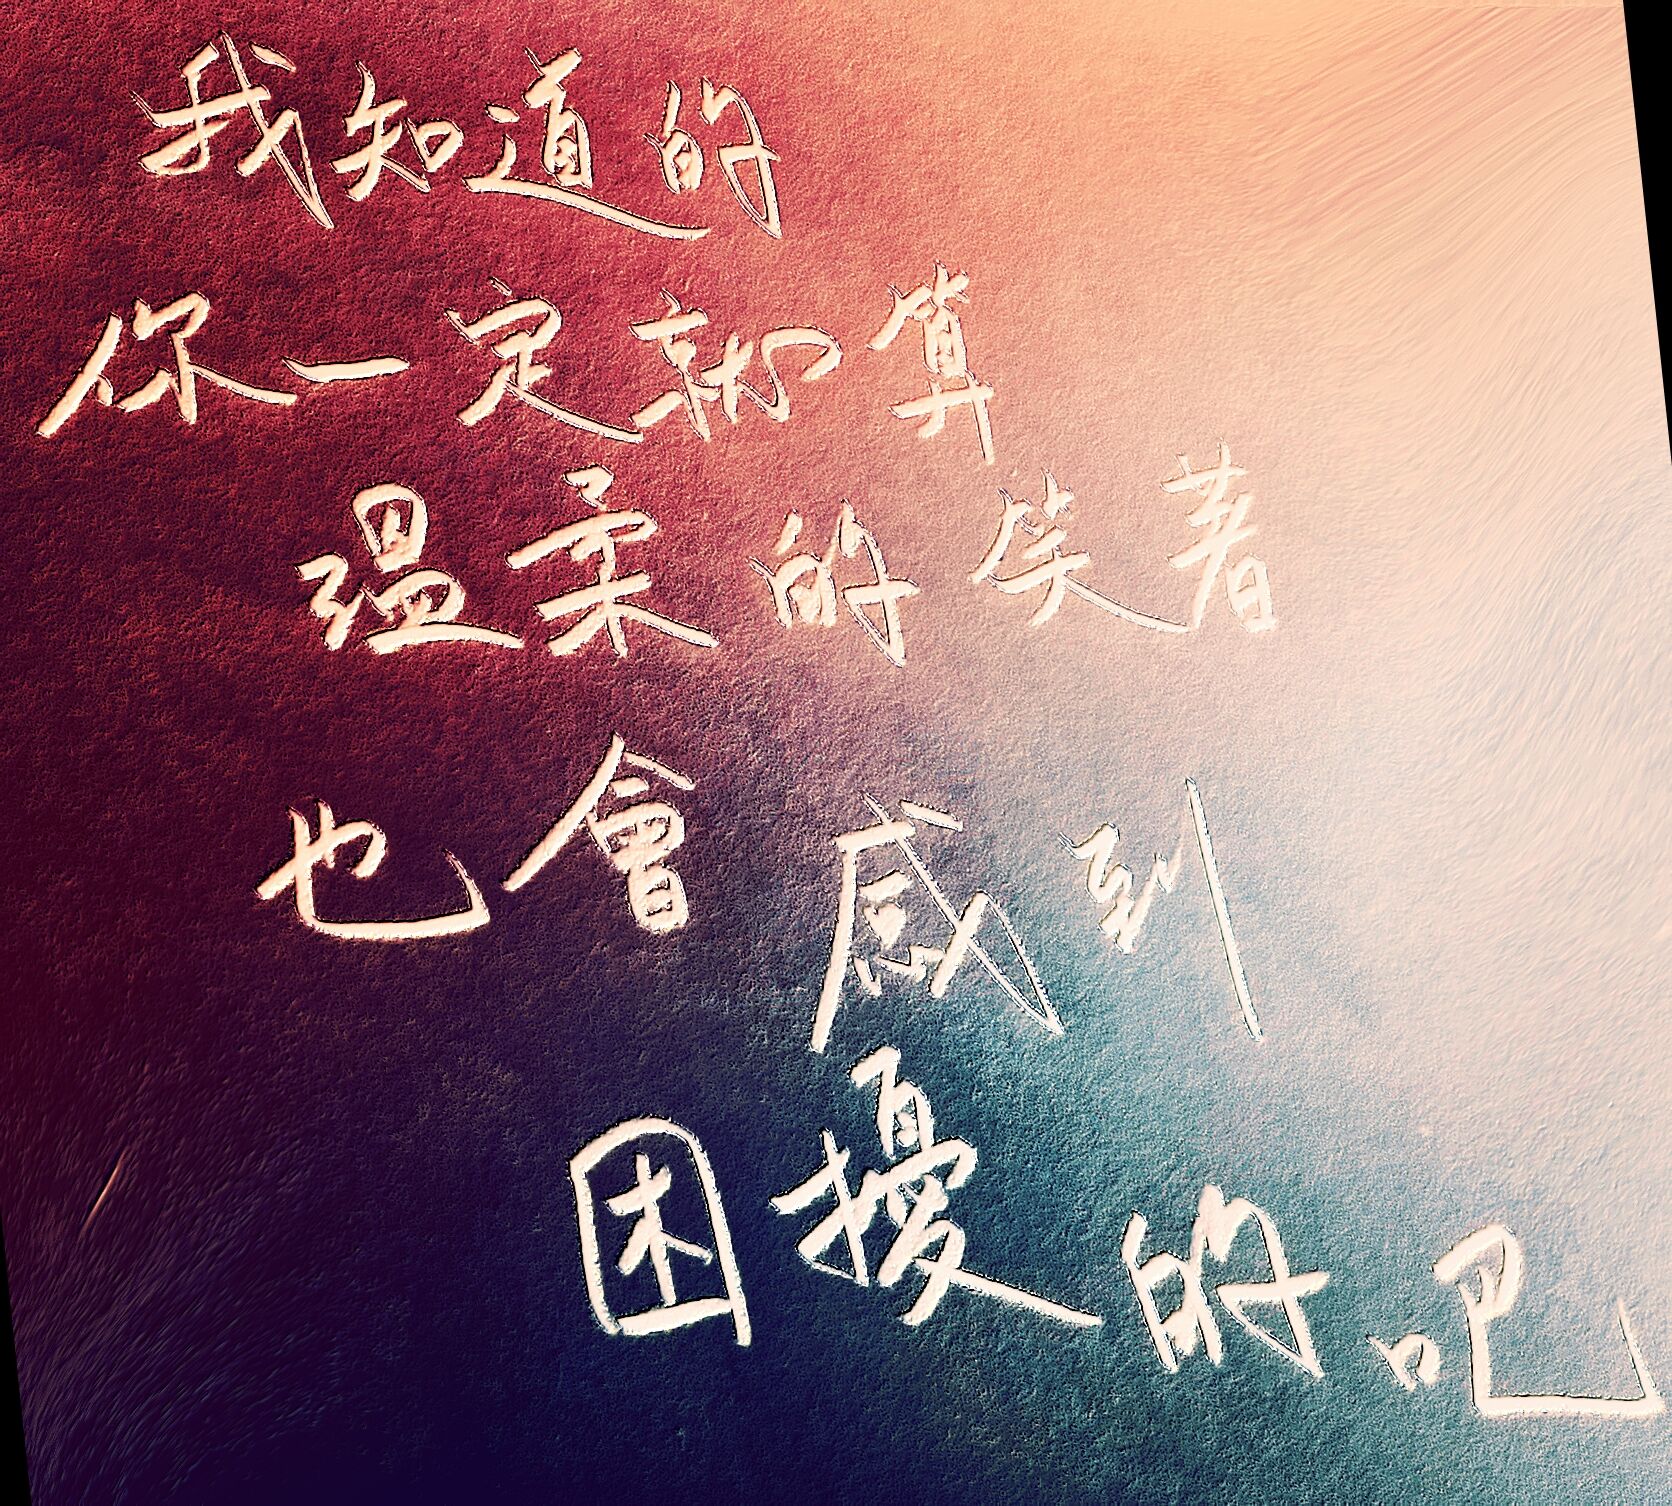 我知道的
你一定就算
溫柔的笑著
也會感到
困擾的吧